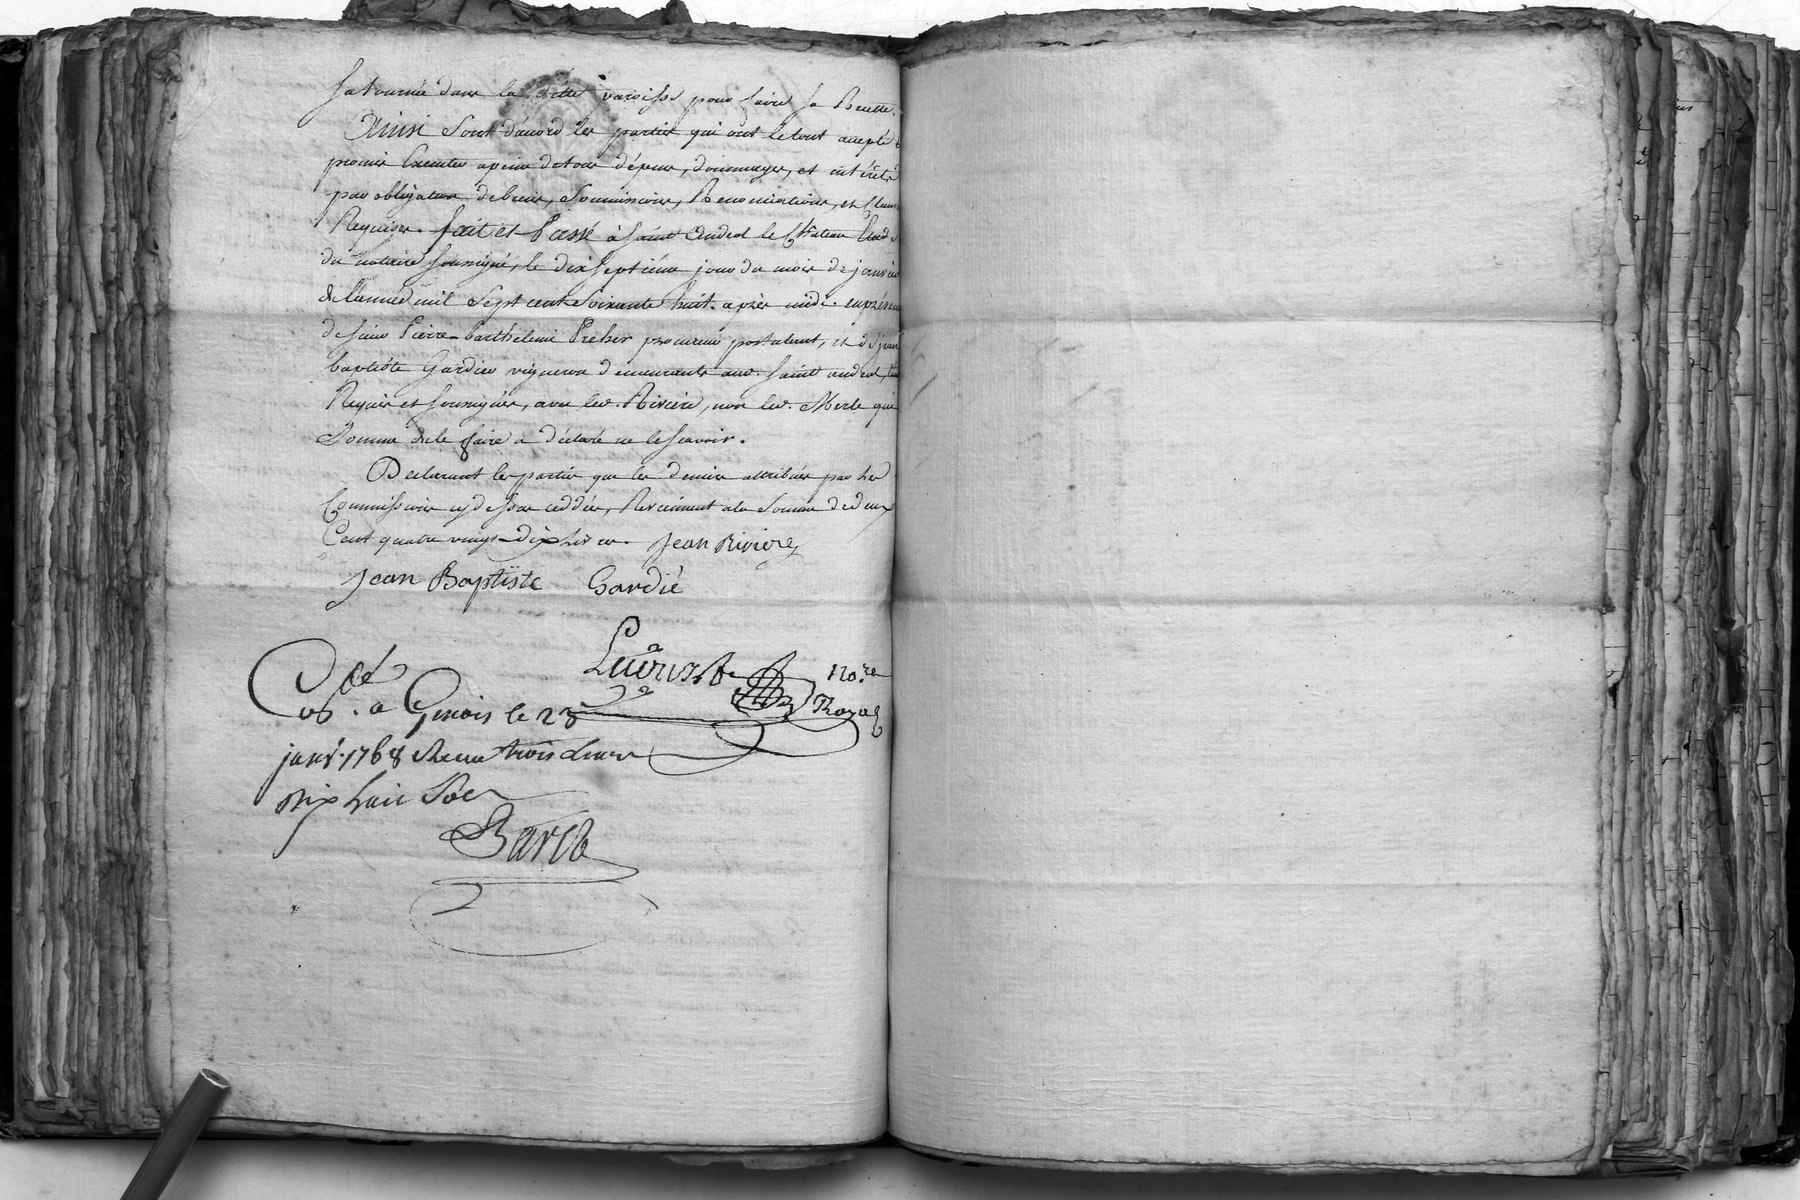 sa tournée dans la ditte paroisse pour faire sa Recette.
Ainsi sont d'accord les parties qui ont le tout accepté &
promis Executer a peine de tous dépens, dommages, et intérêts
par obligation de biens, soumissions, Renonciations, et Clauses
Requises. fait et Passé à saint Andeol le Château Etude
du notaire soussigné, le dix septième jour du mois de janvier
de l'année mil sept cent soixante huit. après midi. en présence
de sieur Pierre-barthelemi Preher procureur postulant, et de jean
baptiste Gardier vigneron demeurants aud. saint andeol, tem
Requis et soussignés, avec led. Riviere, non led. Merle qui
somme de le faire a déclaré ne le sçavoir.
Declarant les parties que les deniers attribués par les
Commissions cydessus ceddées, Reviennent a la somme de deux
Cent quatre vingt-dix livres. Jean Riviere
Jean Baptiste Gardié
No.re
Royal
Con. a Givors le 23
janv. 1768 Recu trois livres
dix huit sols